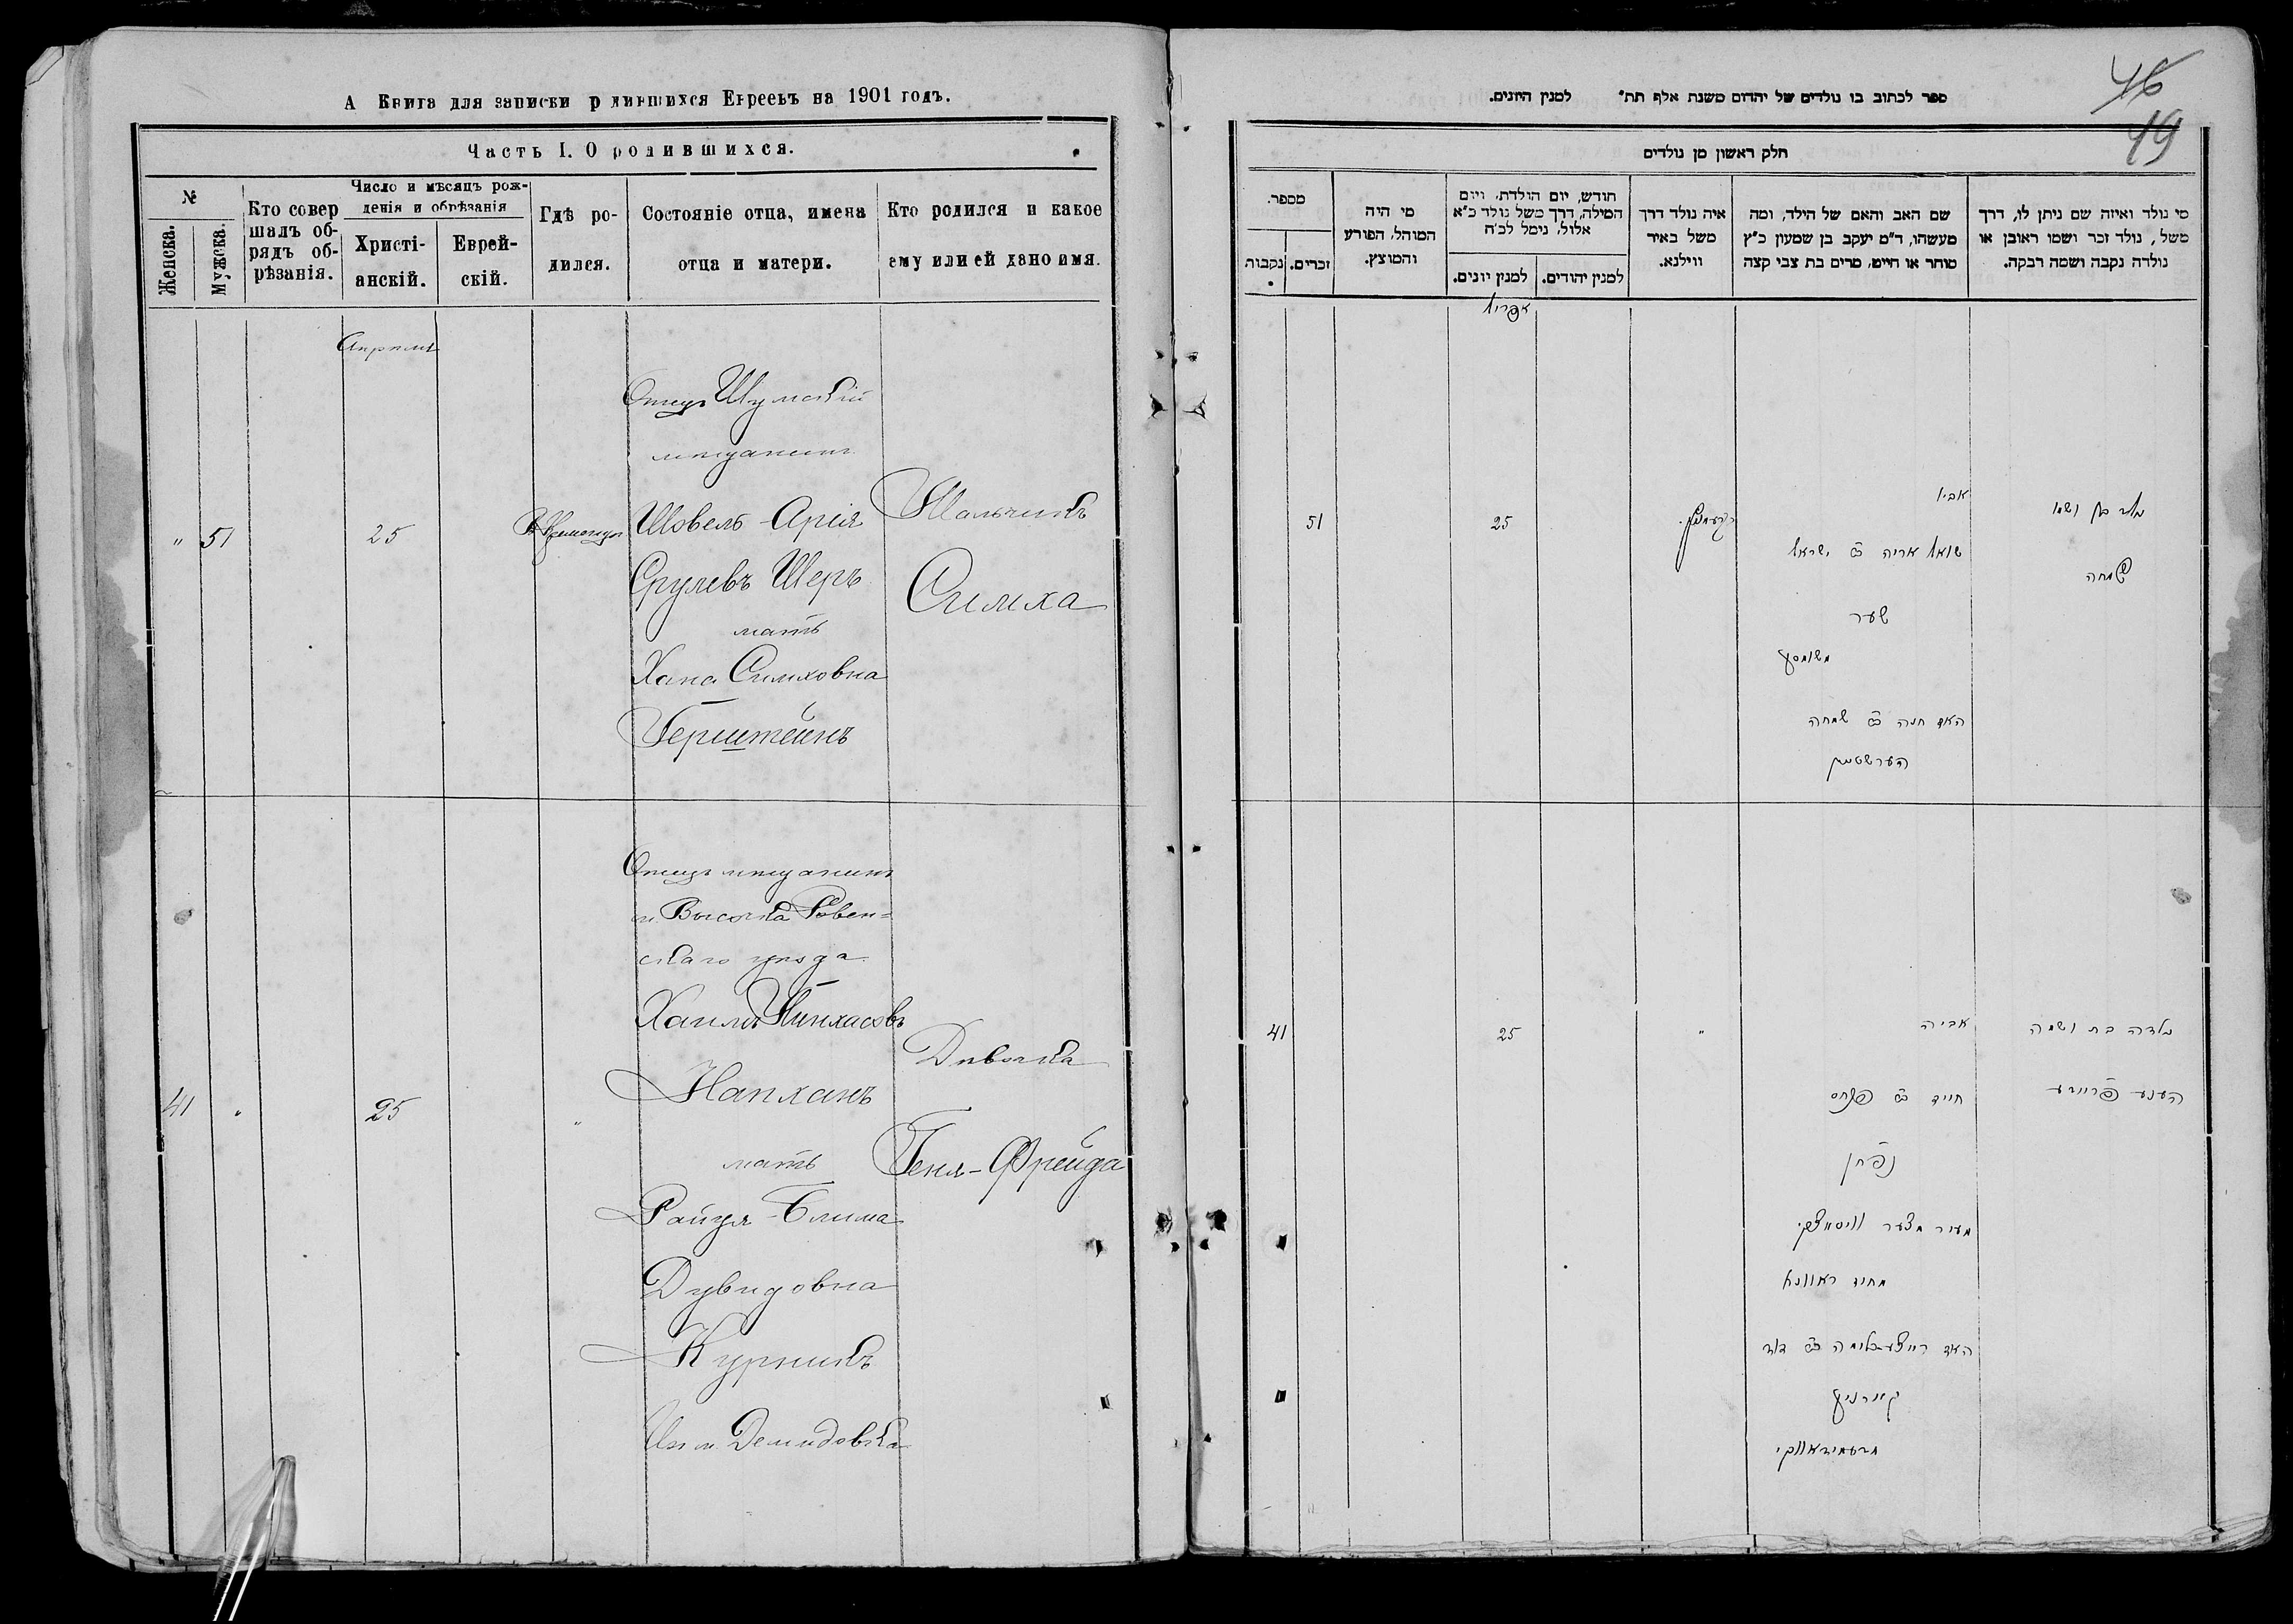 А Книга для записки р дившихся Евреевъ на 1901 годъ.
Часть I. О родившихся.
№
Женска.
Мужска.
Кто совер
шалъ об-
рядъ об-
рѣзанія.
Число и мѣсяцъ рож-
денія и обрѣзанія
Христі-
анскій.
Еврей-
скій.
Гдѣ ро-
дился.
Состояніе отца, имена
отца и матери.
Кто родился и какое
ему или ей дано имя.
Апрѣль
" 51 25 Кременецъ
Отецъ Шумскій
мѣщанинъ
Шовель-Арія
Срулевъ Шеръ
мать
Хана Симховна
Герштейнъ
Мальчикъ
Симха
41 " 25 "
Отецъ мѣщанинъ
м. Высоцка Ровен-
скаго уѣзда
Хаимъ Пинхасовъ
Напханъ
мать
Райця-Блима
Дувидовна
Курникъ
Из м. Демидовка
Дѣвочка
Геня-Фрейда
46
49
ספר לכתוב בו נולדים של יהדים משנת אלף תת״ למנין היונים.
חלק ראשון מן נולדים
מספר.
נקבות
זכרים.
מי היה
המוהל, הפורע
והמוצץ.
חודש, יום הולדת, ויום
המילה, דרך משל נולד כ״א
אלול, נימל לכ״ח
למנין יונים.
למנין יהודים.
איה נולד דרך
משל באיר
ווילנא.
שם האב והאם של הילד, ומה
מעשהו, ד״מ יעקב בן שמעון כ״ץ
סוחר או חייט, מרים בת צבי קצה
מי נולד ואיזה שם ניתן לו, דרך
משל, נולד זכר ושמו ראובן או
נולדה נקבה ושמה רבקה.
אפריל
51 25
אביו
שואל אריה ב״ר ישראל
שער
משומסק
האם חנה ב״ר שמחה
הערשטיין
נולד בן ושמו
שמחה
41 25 "
אביה
חיים ב״ר פנחס
נפחן
מעיר מצער וויסאצק
מחוז ראוונא
האם רייצע בלומה ב״ר דוד
קורניק
מדעמידאווקי
נולדה בת ושמה
הענע פריידע